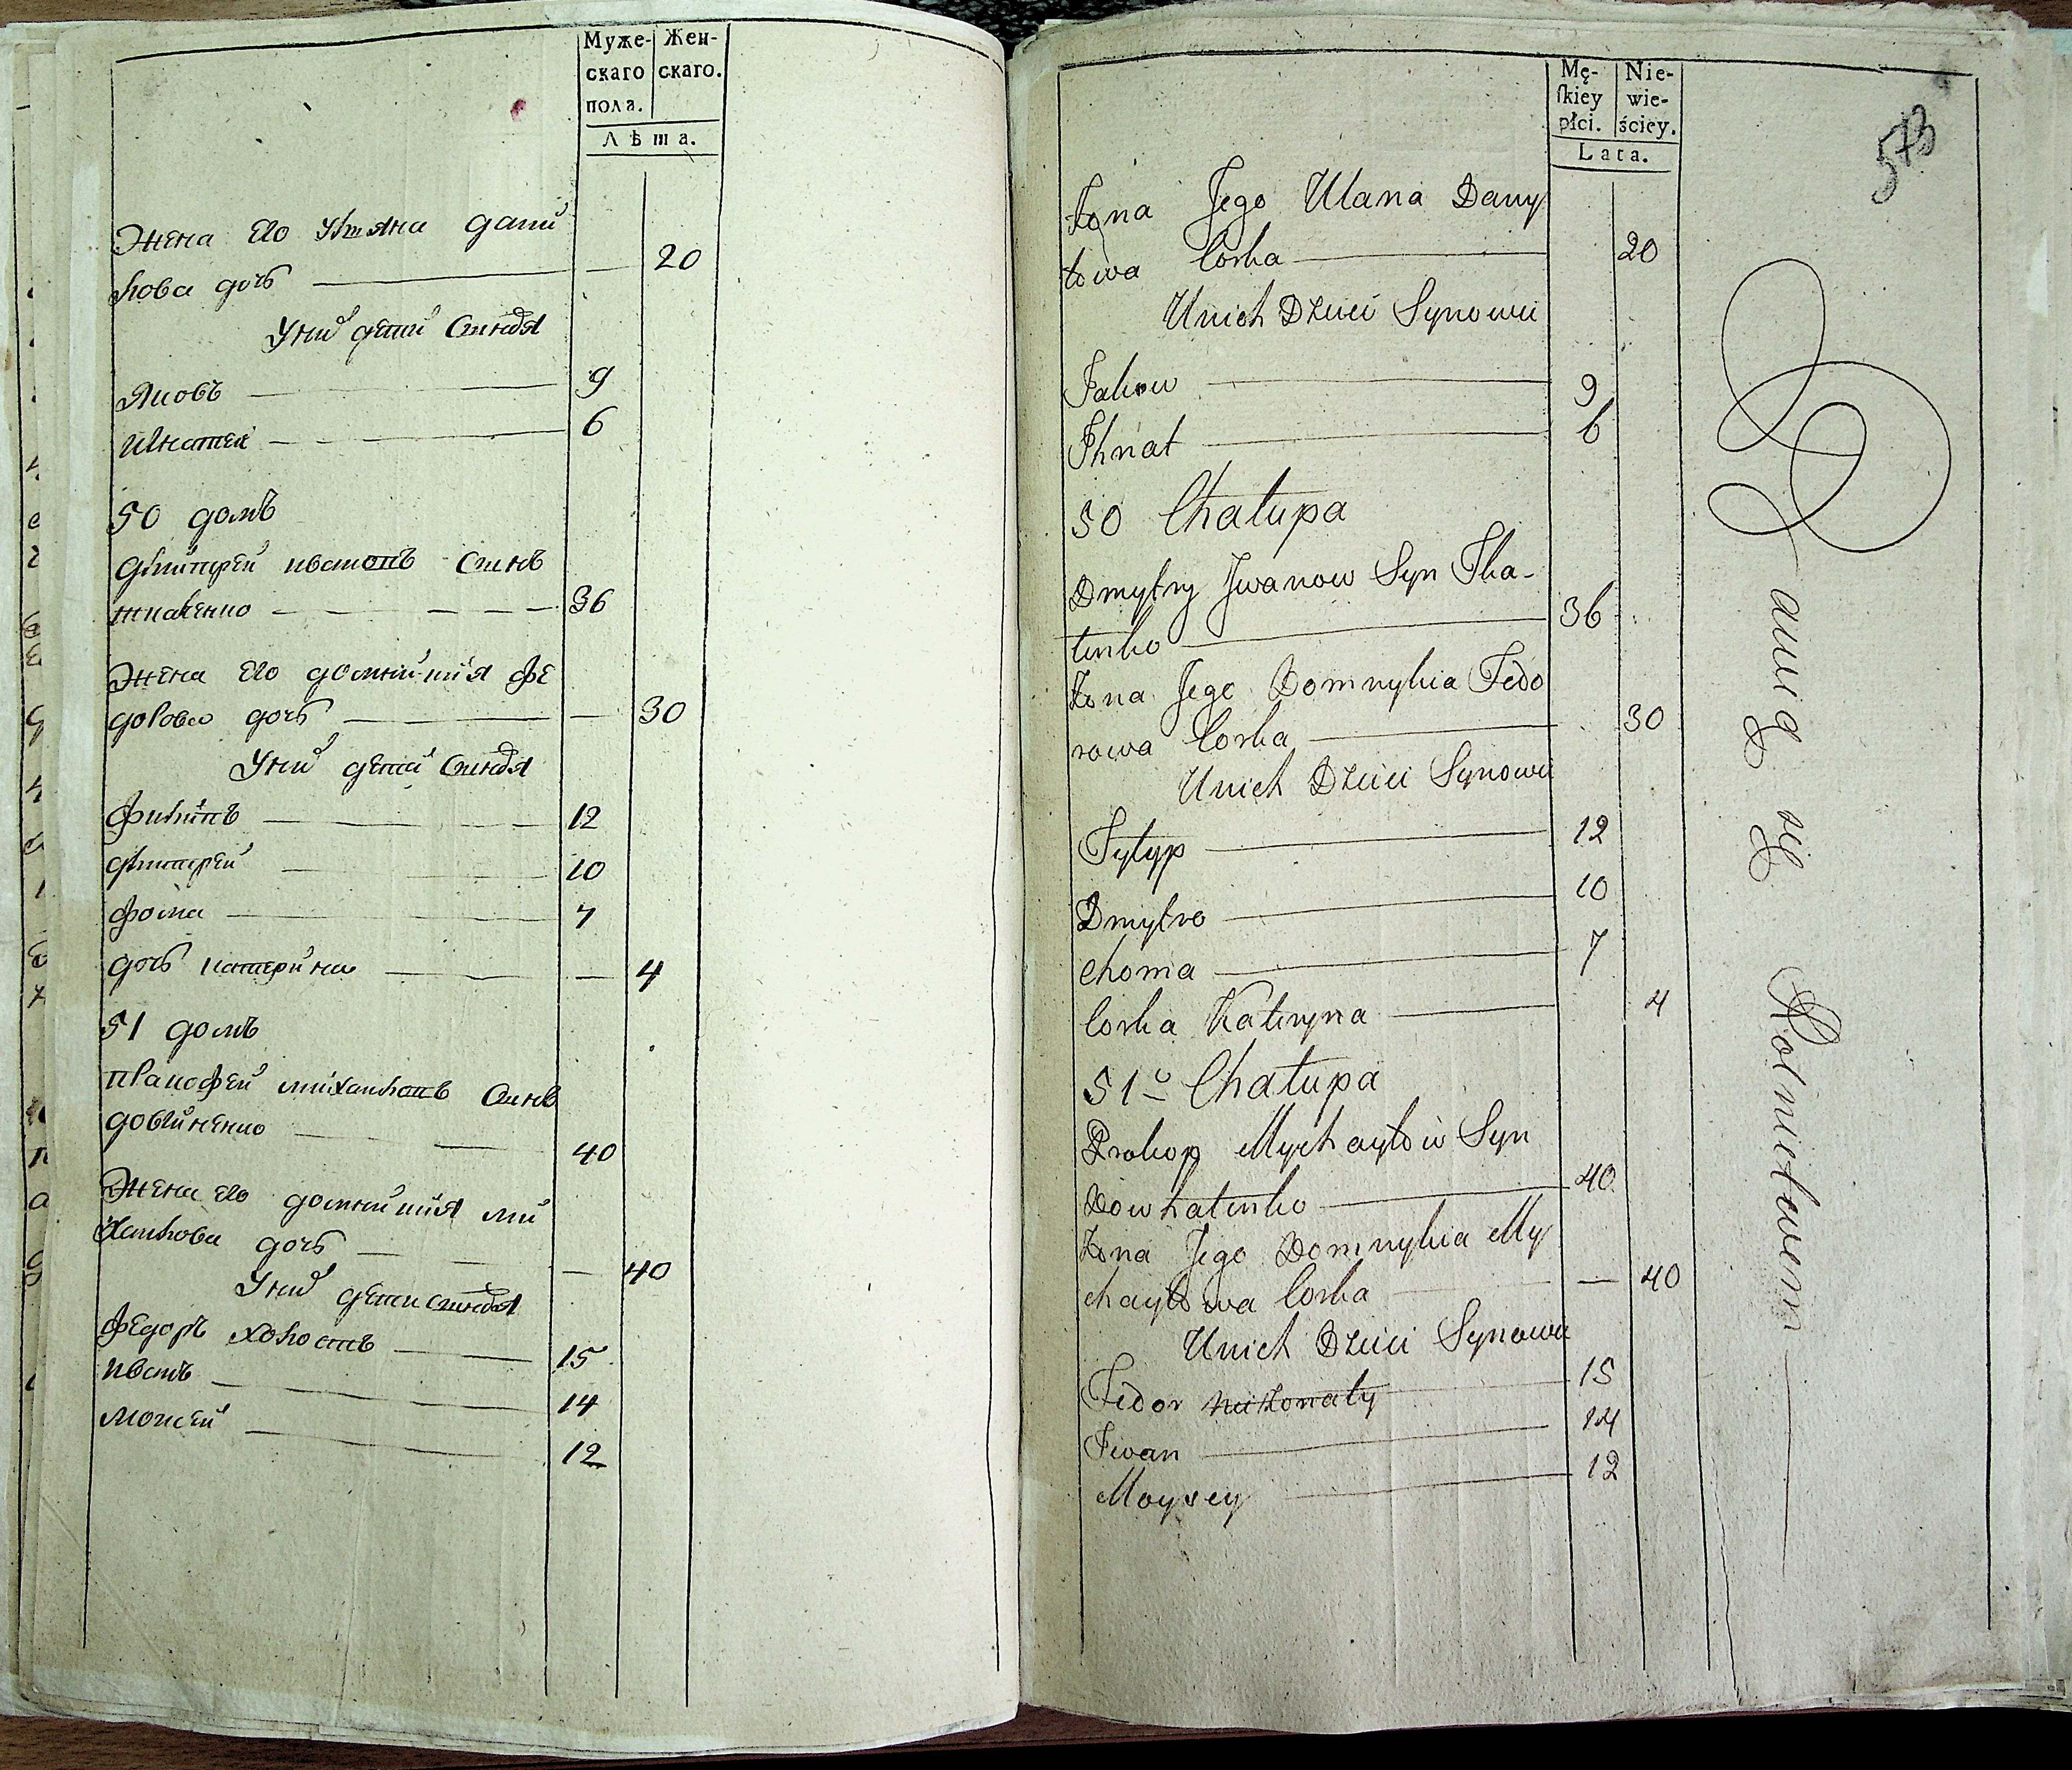 Муже-
скаго
пола.
Жен-
скаго.
Лѣта.
Жена Его Улияна Дани
лова дочь — 20
У них дети Сыновя
Яковъ 9
Игнатей 6
50 домъ
Дмитрей ивановъ Сынъ
ткаченко 36
Жена Его домникия фе
дорова дочь — 30
У них дети Сыновя
филипъ 12
дмитрей 10
фома 7
дочь катерина — 4
51 домъ
Пракофей михаиловъ Сынъ
довгиненко 40
Жена Его домникия ми
хаилова дочь — 40
У них дети сыновя
федоръ холостъ 15
иванъ 14
моисей 12
Mę-
ſkiey
płci.
Nie-
wie-
ściey.
Lata.
573
Żona Jego Ulana Dany
łowa Corka 20
Unich Dzieci Synowie
Jakow 9
Ihnat 6
50 Chałupa
Dmytry Jwanow Syn Tka-
czenko 36
Żona Jego Domnykia Fedo
rowa Corka 30
Unich Dzieci Synowie
Fyłyp 12
Dmytro 10
Choma 7
Corka Kateryna 4
51º Chałupa
Prokop Mychayłow Syn
Dowhalenko 40
Żona Jego Domnykia My
chayłowa Corka — 40
Unich Dzieci Synowie
Fedor nieżonaty 15
Iwan 14
Moysey 12